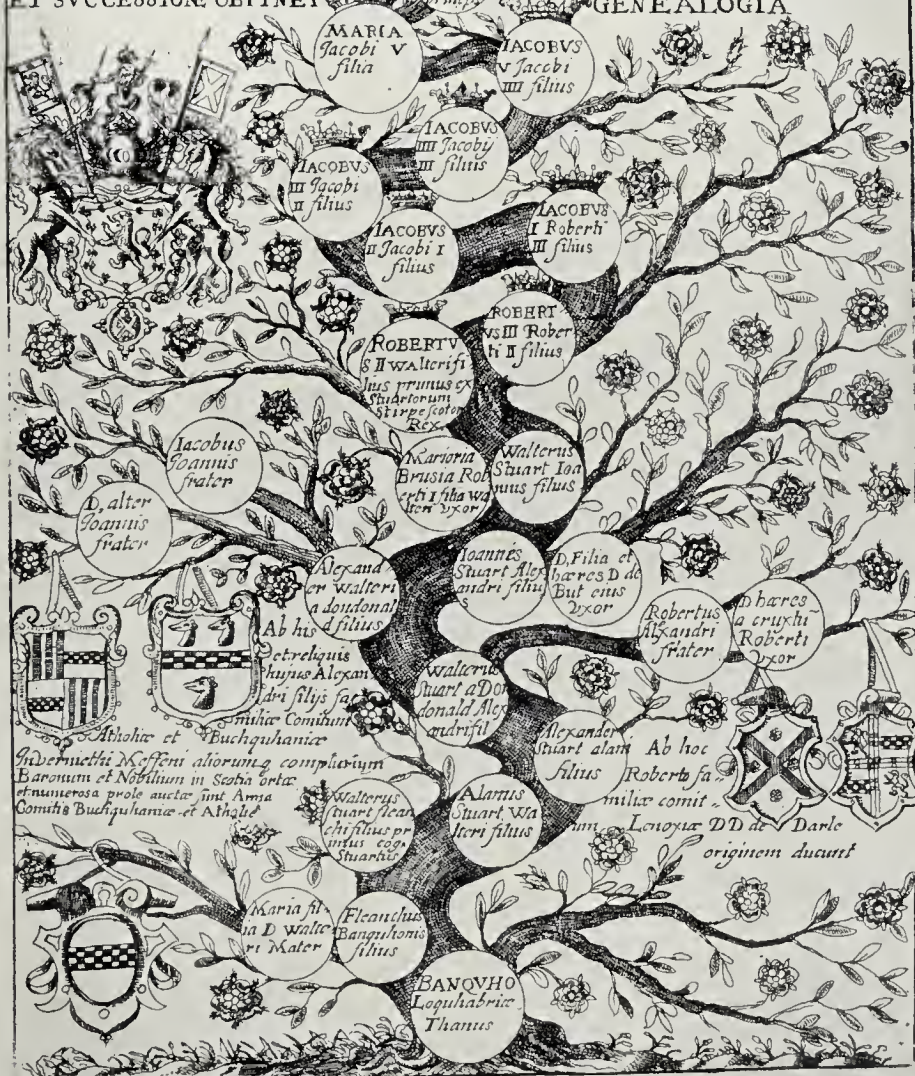 ET SVCCESSIONE OBTINET
GENEALOGIA
MARIA
Jacobi V
filia
IACOBVS
V Jacobi
IIII filius
IACOBVS
IIII Jacoby
III filius
IACOBVS
III Jacobi
II filius
IACOBVS
II Jacobi I
filius
IACOBVS
I Roberti
III filius
ROBERT-
VS III Rober
ti II filius
ROBERTV
S II walteri fi
lius primus ex
Stuartorum
Stirpe scotor
Rex
Iacobus
Joannis
frater
Marioria
Brusia Rob
erti I filia Wa
lteri vxor
Walterus
Stuart Ioa
nnis filius
D, alter
Joannis
frater
Alexand-
er Walteri
a doudonal
d filius
Ioannes
Stuart Alex
andri filiu
s
D, Filia et
hæres D de
But eius
vxor
Robertus
Alxandri
frater
D hæres
a cruxtu
Roberti
vxor
Ab his
et reliquis
huius Alexan
dri filijs fa
miliæ Comitum
Atholiæ et Buchquhaniæ
Indermethi Meffeni aliorumq complurium
Baronum et Nobilium in Scotia ortæ
et numerosa prole auctæ sunt Arma
Comitis Buchquhaniæ et Atholie
Walteru
Stuart a Don
donald Alex
andri fil
Alexander
Stuart alani
filius
Ab hoc
Roberto fa-
miliæ comit-
um Lenoxiæ DD de Darle
originem ducunt
Walterus
stuart flean
chi filius pr
imus cog.
Stuartus
Alanus
Stuart, Wa
lteri filius
Maria fil
ia D Walte
ri Mater
Fleanchus
Banquhonis
filius
BANQVHO
Loquhabriæ
Thanus